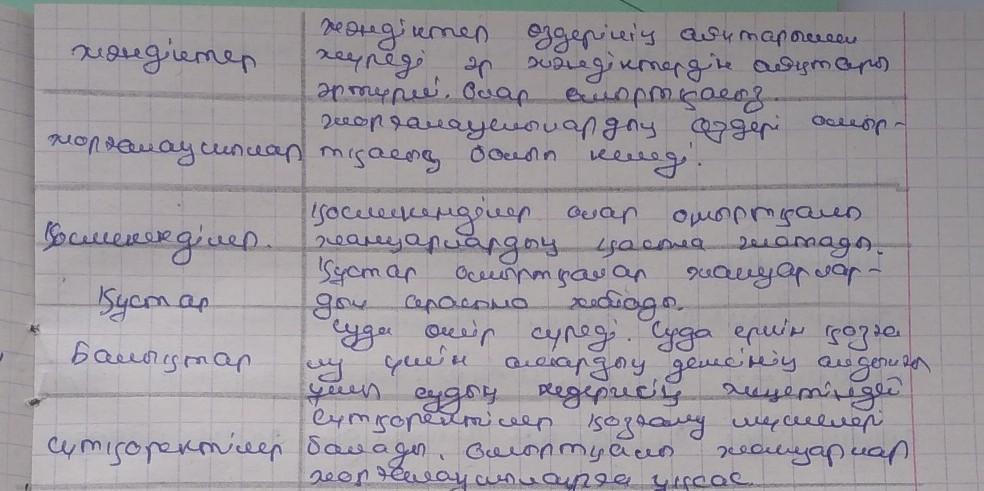 жәндіктер
жәндіктер өздерінің аяқтарымен
жүреді әр жәндіктердің аяқтары
әртүрлі. Олар омыртқасыз.
жорғалаушылар
жорғалаушылардың өздері омыр-
тқасыз болып келеді.
Қосмекенділер.
Қосмекенділер олар омыртқалы
жануарлардың қасына жатады.
Құстар
Құстар омыртқалар жануарлар-
дың сарасына жабады.
Балықтар
Суда өмір сүреді. Суда еркін қозға
лу үшін олардың денесінің алдыңғы
ұшы судың кедергісің
Сүтқоректілер
Сүтқоректілер қозғалу мүшелері
болады. Омыртқалы жануарлар
жорғалаушыларға ұқсас